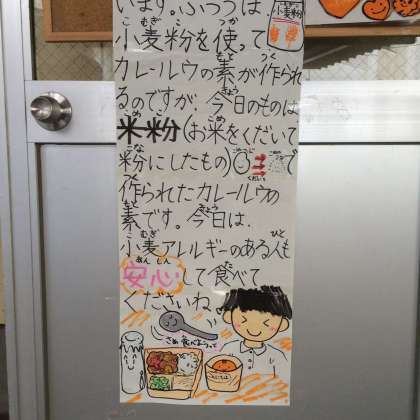 います。ふつうは、
小麦粉
小麦粉を使って
カレールウの素が作られ
るのですが、今日のものは、
米粉(お米をくだいて
粉にしたもの)で
作られたカレールウの
素です。今日は、
小麦アレルギーのある人も
安心して食べて
くださいね。
さぁ食べようっと